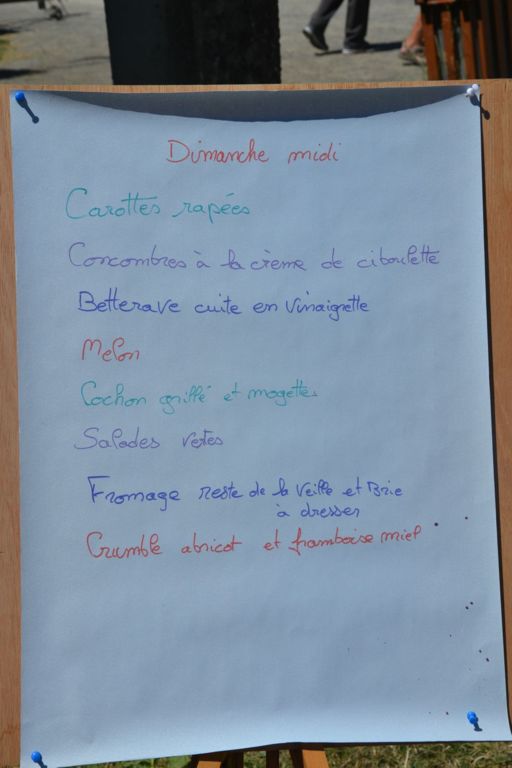 Dimanche midi
Carottes rapées
Concombres à la crème de ciboulette
Betterave cuite en vinaigrette
Melon
Cochon grillé et mogettes
Salades vertes
Fromage reste de la veille et Brie
à dresser
Crumble abricot et framboise miel